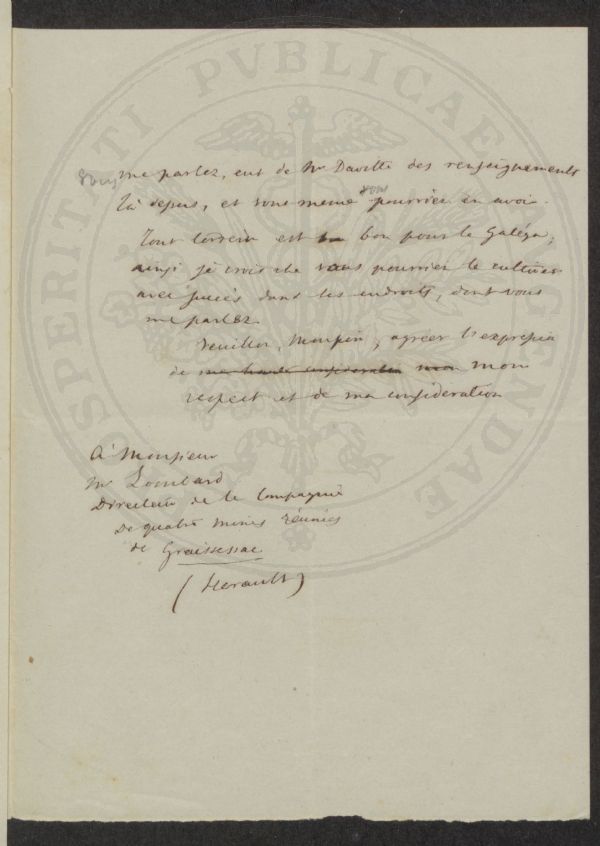 PROSPERITATI PVBLICAE AVGENDAE
vous me parlez, eut de Mr Davotte des renseignements
là depus, et vous meme vous pourriez en avoir.
Tout terrein est bon pour le Galéga,
ainsi je crois che vous pourriez le cultiver
avec succès dans les endroits, dont vous
me parlez.
Veuillez, Monsieur, agréer l'expression
de ma haute consideration mon
respect et de ma consideration
à Monsieur
Mr Lombard
Directeur de la Compagnie
de quatre mines réunies
de Graissessac
(Herault)